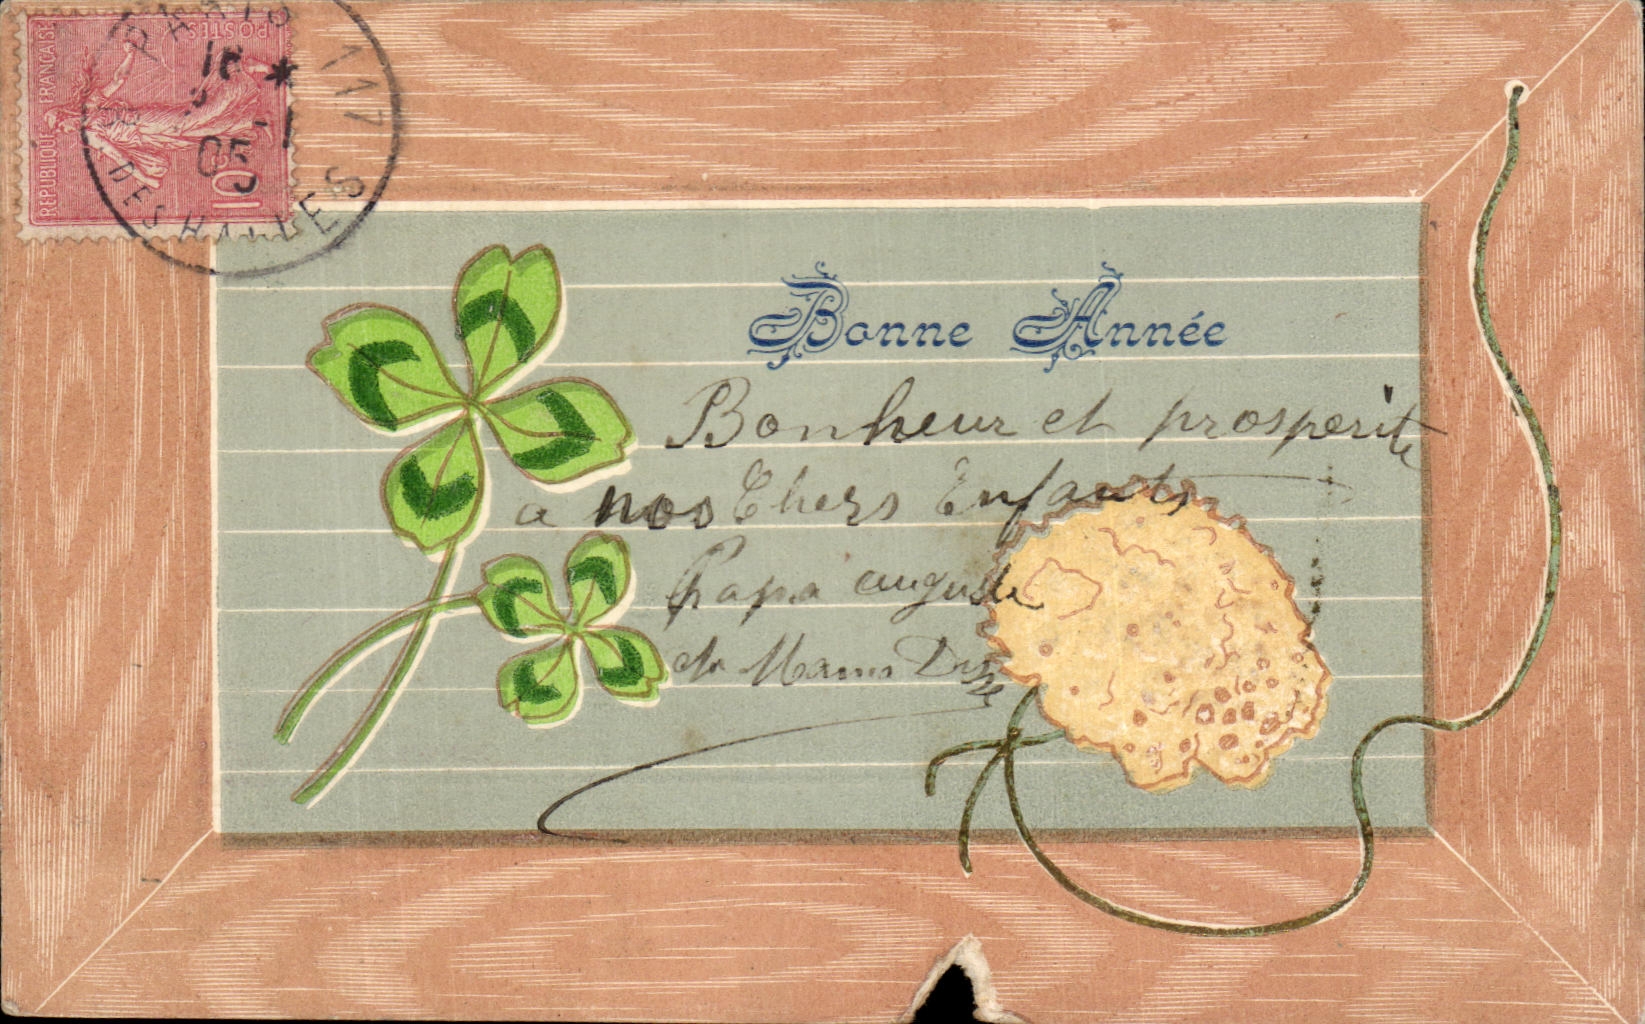 REPUBLIQUE FRANÇAISE
POSTES
10c
PARIS 117
05
DES HALLES
Bonne Année
Bonheur et prosperite
a nos Chers Enfants
Papa auguste